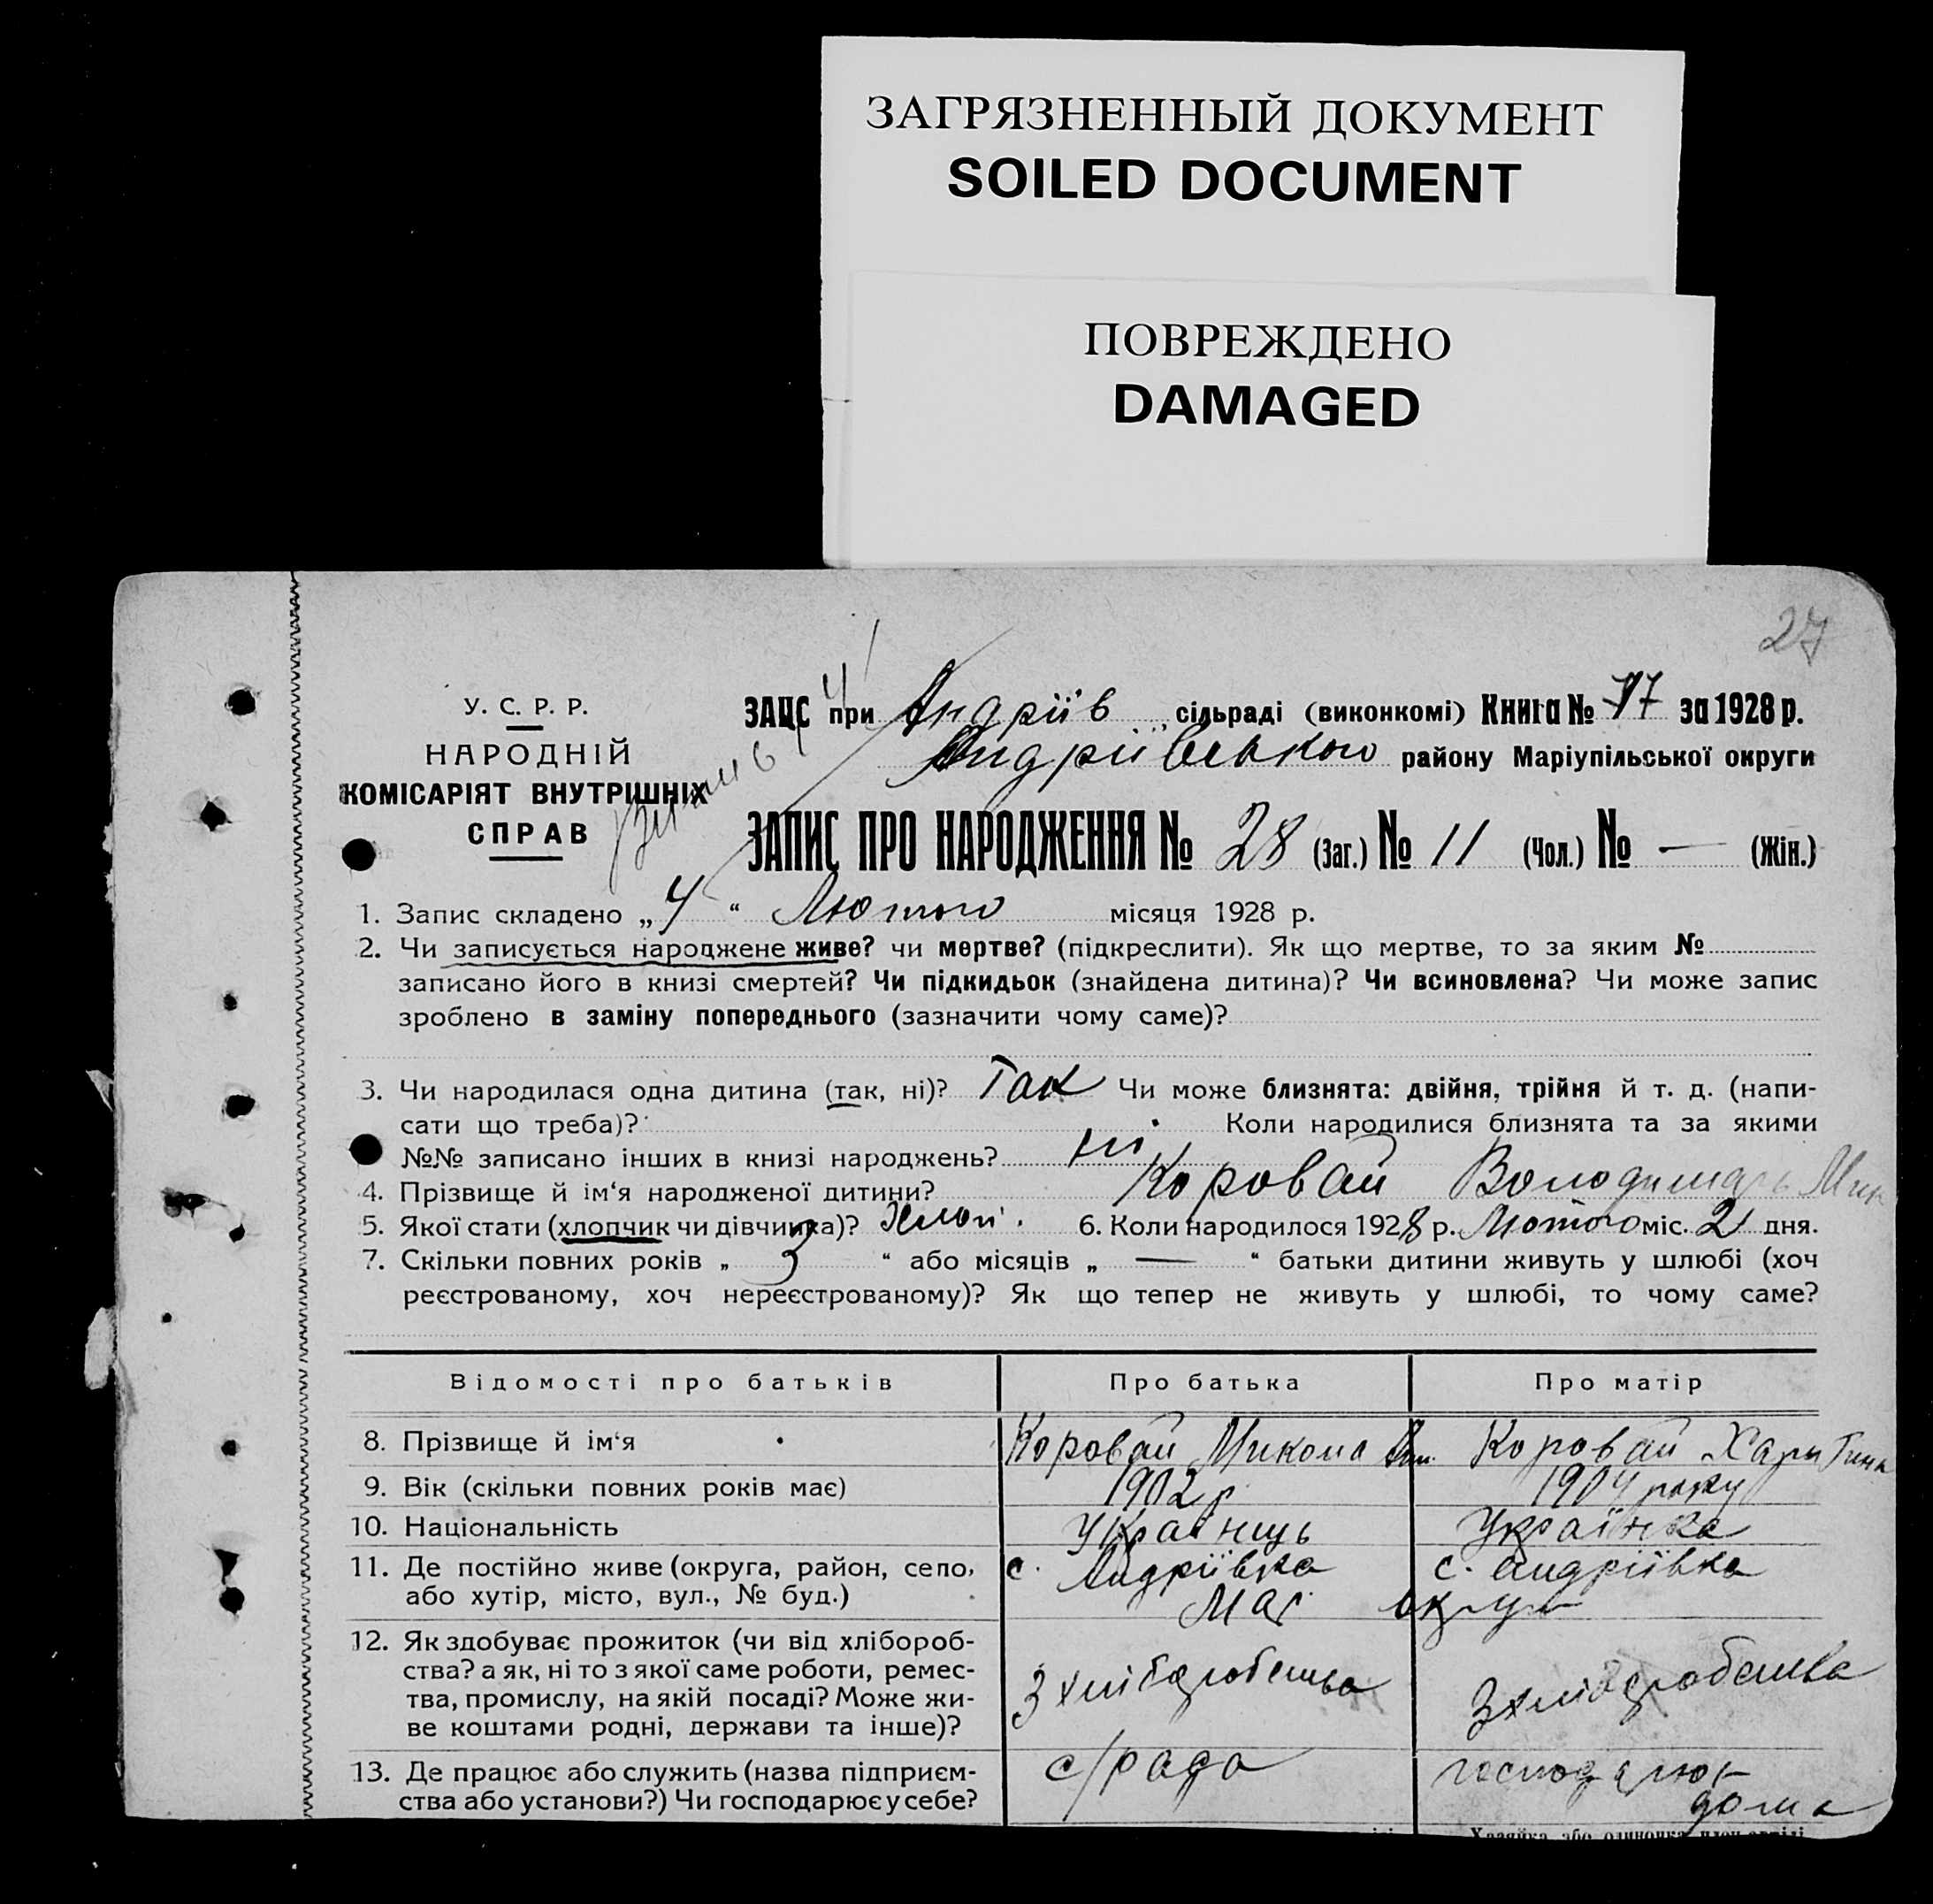 ЗАГРЯЗНЕННЫЙ ДОКУМЕНТ
SOILED DOCUMENT
ПОВРЕЖДЕНО
DAMAGED
27
У. С. Р. Р.
НАРОДНІЙ
КОМІСАРІЯТ ВНУТРІШНІХ
СПРАВ
ЗАЦС при Андріїв сільраді (виконкомі) Книга № за 1928 р.
Андріївського району Маріупільської округи
ЗАПИС ПРО НАРОДЖЕННЯ № 28 (Заг.) № 11 (Чол.) № — (Жін.)
1. Запис складено „4“ Лютого місяця 1928 р.
2. Чи записується народжене живе? чи мертве? (підкреслити). Як що мертве, то за яким №
записано його в книзі смертей? Чи підкидьок (знайдена дитина)? Чи всиновлена? Чи може запис
зроблено в заміну попереднього (зазначити чому саме)?
3. Чи народилася одна дитина (так, ні)? Так Чи може близнята: двійня, трійня й т. д. (напи-
сати що треба)? Коли народилися близнята та за якими
№№ записано інших в книзі народжень? ні
4. Прізвище й ім‘я народженої дитини? Коровай Володимирь Мик
5. Якої стати (хлопчик чи дівчинка)? Хлоп. 6. Коли народилося 1928 р. Лютого міс. 2 дня.
7. Скільки повних років „ 3 “ або місяців „ — “ батьки дитини живуть у шлюбі (хоч
реєстрованому, хоч нереєстрованому)? Як що тепер не живуть у шлюбі, то чому саме?
Відомості про батьків Про батька Про матір
8. Прізвище й ім‘я Коровай Микола Коровай Харитина
9. Вік (скільки повних років має) 1902 р 1904 року
10. Національність Українць Українка
11. Де постійно живе (округа, район, село, с. Андріївка с. Андріївка
або хутір, місто, вул., № буд.) Мар округи
12. Як здобуває прожиток (чи від хлібороб-
ства? а як, ні то з якої саме роботи, ремес- З хліборобства З хліборобства
тва, промислу, на якій посаді? Може жи-
ве коштами родні, держави та інше)?
13. Де працює або служить (назва підприєм- с/рада господарює
ства або установи?) Чи господарює у себе? дома